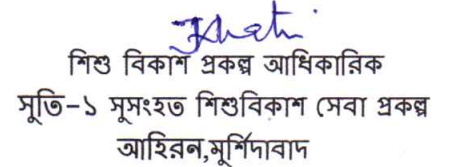 শিশু বিকাশ প্রকল্প আধিকারিক
সুতি-১ সুসংহত শিশুবিকাশ সেবা প্রকল্প
আহিরন,মুর্শিদাবাদ